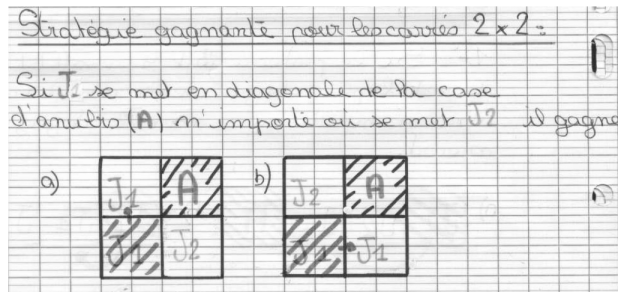 Stratégie gagnante pour les carrés 2 × 2 :
Si J1 se met en diagonale de la case
d'anubis (A) n'importe où se met J2 il gagne
a) J1 A b) J2 A
J1 J2 J1 J1